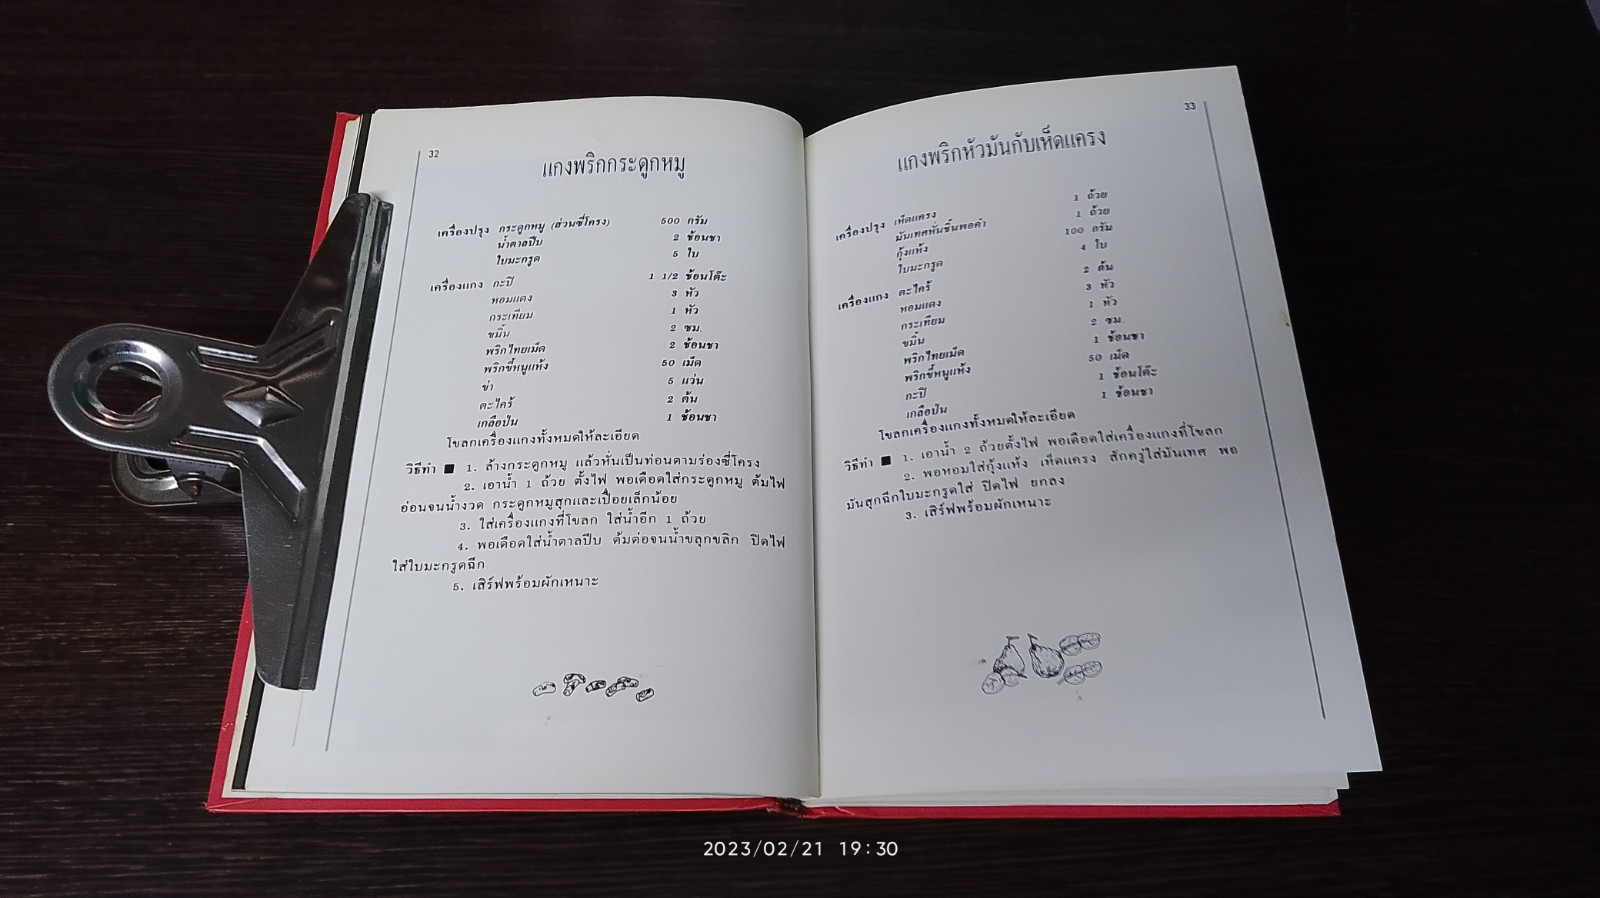 32
แกงพริกกระดูกหมู
เครื่องปรุง กระดูกหมู (ส่วนซี่โครง) 500 กรัม
น้ำตาลปีบ 2 ช้อนชา
ใบมะกรูด 5 ใบ
เครื่องแกง กะปิ 1 1/2 ช้อนโต๊ะ
หอมแดง 3 หัว
กระเทียม 1 หัว
ขมิ้น 2 ซม.
พริกไทยเม็ด 2 ช้อนชา
พริกขี้หนูแห้ง 50 เม็ด
ข่า 5 แว่น
ตะไคร้ 2 ต้น
เกลือป่น 1 ช้อนชา
โขลกเครื่องแกงทั้งหมดให้ละเอียด
วิธีทำ ■ 1. ล้างกระดูกหมู แล้วหั่นเป็นท่อนตามร่องซี่โครง
2. เอาน้ำ 1 ถ้วย ตั้งไฟ พอเดือดใส่กระดูกหมู ต้มไฟ
อ่อนจนน้ำงวด กระดูกหมูสุกและเปื่อยเล็กน้อย
3. ใส่เครื่องแกงที่โขลก ใส่น้ำอีก 1 ถ้วย
4. พอเดือดใส่น้ำตาลปีบ ต้มต่อจนน้ำขลุกขลิก ปิดไฟ
ใส่ใบมะกรูดฉีก
5. เสิร์ฟพร้อมผักเหนาะ
33
แกงพริกหัวมันกับเห็ดแครง
เครื่องปรุง เห็ดแครง 1 ถ้วย
มันเทศหั่นชิ้นพอคำ 1 ถ้วย
กุ้งแห้ง 100 กรัม
ใบมะกรูด 4 ใบ
เครื่องแกง ตะไคร้ 2 ต้น
หอมแดง 3 หัว
กระเทียม 1 หัว
ขมิ้น 2 ซม.
พริกไทยเม็ด 1 ช้อนชา
พริกขี้หนูแห้ง 50 เม็ด
กะปิ 1 ช้อนโต๊ะ
เกลือป่น 1 ช้อนชา
โขลกเครื่องแกงทั้งหมดให้ละเอียด
วิธีทำ ■ 1. เอาน้ำ 2 ถ้วยตั้งไฟ พอเดือดใส่เครื่องแกงที่โขลก
2. พอหอมใส่กุ้งแห้ง เห็ดแครง สักครู่ใส่มันเทศ พอ
มันสุกฉีกใบมะกรูดใส่ ปิดไฟ ยกลง
3. เสิร์ฟพร้อมผักเหนาะ
2023/02/21 19:30